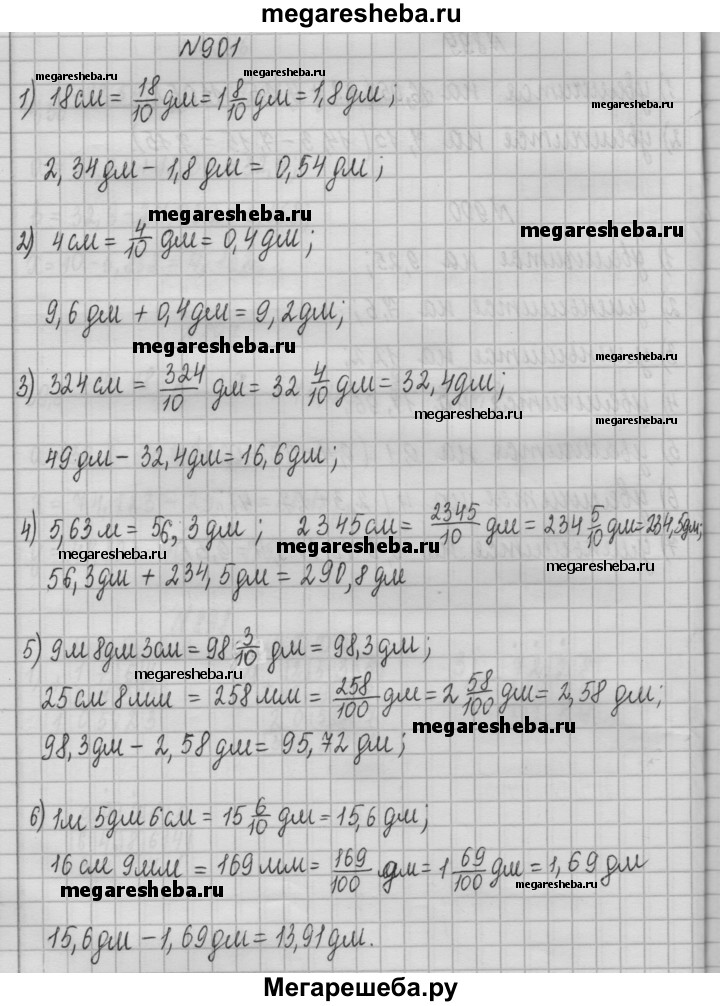 megaresheba.ru
№901
megaresheba.ru megaresheba.ru
1) 18 см = 18/10 дм = 1 8/10 дм = 1,8 дм;
megaresheba.ru
2,34 дм - 1,8 дм = 0,54 дм;
megaresheba.ru
megaresheba.ru
2) 4 см = 4/10 дм = 0,4 дм;
9,6 дм + 0,4 дм = 9,2 дм;
megaresheba.ru
megaresheba.ru
3) 324 см = 324/10 дм = 32 4/10 дм = 32,4 дм;
megaresheba.ru
49 дм - 32,4 дм = 16,6 дм;
4) 5,63 м = 56,3 дм; 2345 см = 2345/10 дм = 234 5/10 дм = 234,5 дм;
megaresheba.ru megaresheba.ru
megaresheba.ru
56,3 дм + 234,5 дм = 290,8 дм
5) 9 м 8 дм 3 см = 98 3/10 дм = 98,3 дм;
megaresheba.ru
25 см 8 мм = 258 мм = 258/100 дм = 2 58/100 дм = 2,58 дм;
megaresheba.ru
98,3 дм - 2,58 дм = 95,72 дм;
6) 1 м 5 дм 6 см = 15 6/10 дм = 15,6 дм;
16 см 9 мм = 169 мм = 169/100 дм = 1 69/100 дм = 1,69 дм
megaresheba.ru megaresheba.ru
15,6 дм - 1,69 дм = 13,91 дм.
Мегарешеба.ру